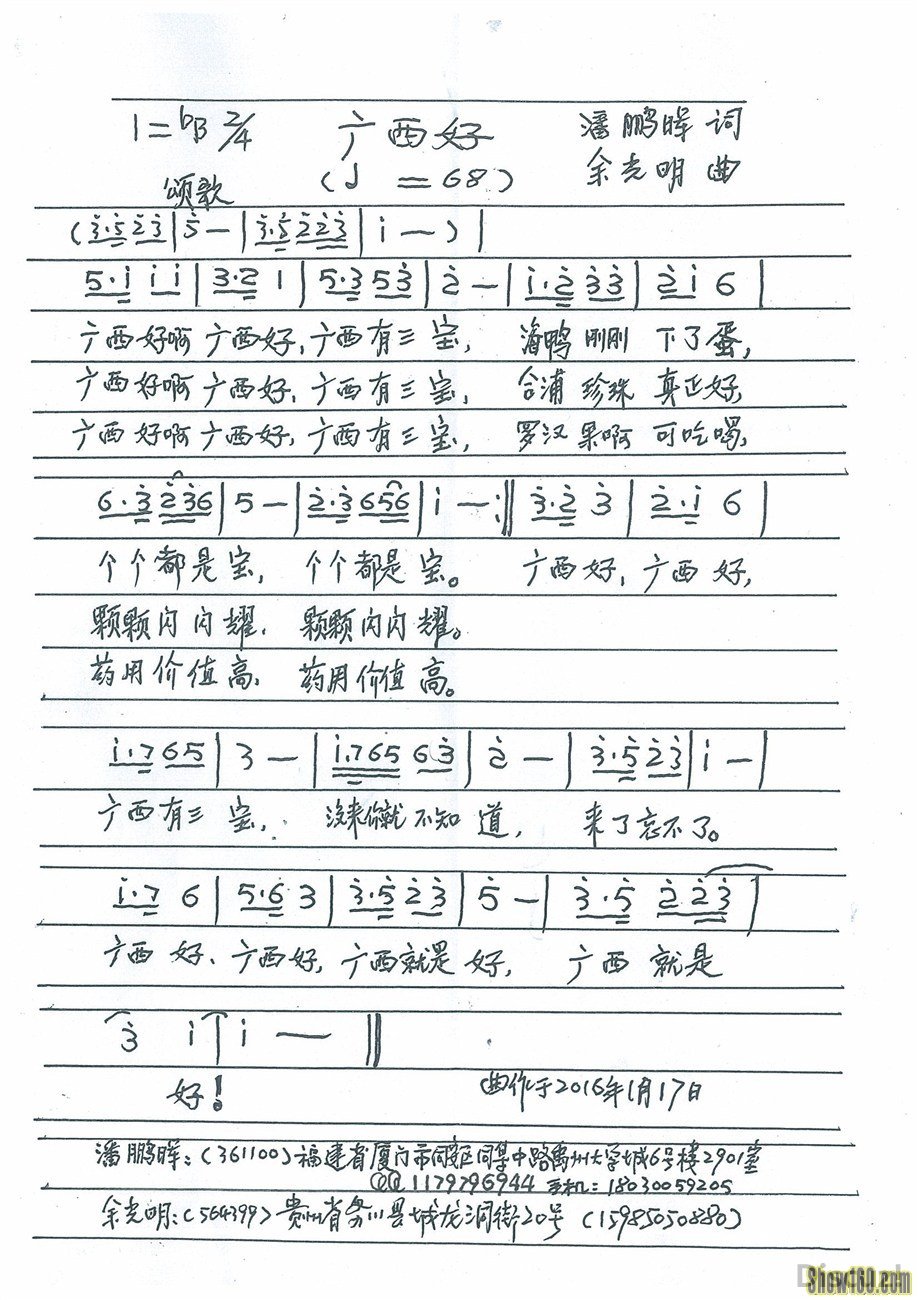 1=ᵇB 2/4 广西好 潘鹏晖 词
颂歌 (♩=68) 余光明 曲
(3̇·5̇ 2̇3̇|5̇ —|3̇·5̇ 2̇2̇3̇|i —)|
5·i i i|3·2 1|5·3 53̇|2̇ —|i·2̇ 3̇3̇|2̇i 6|
广西好啊广西好,广西有三宝, 潘鸭刚刚下了蛋,
广西好啊广西好,广西有三宝, 合浦珍珠真正好,
广西好啊广西好,广西有三宝, 罗汉果啊可吃喝,
6·3̇ 2̇3̇6|5 —|2̇·3̇ 656|i —:‖3̇·2̇ 3̇|2̇·i 6|
个个都是宝, 个个都是宝。 广西好,广西好,
颗颗闪闪耀, 颗颗闪闪耀。
药用价值高, 药用价值高。
i·7 65|3 —|i·765 63̇|2̇ —|3̇·5̇ 2̇3̇|i —|
广西有三宝, 没来你就不知道, 来了忘不了。
i·7 6|5·6 3|3̇·5̇ 2̇3̇|5̇ —|3̇·5̇ 2̇2̇3̇|
广西好、广西好,广西就是好, 广西就是
3̇ i|i —‖
好! 曲作于2016年1月17日
潘鹏晖:(361100)福建省厦门市同安区同集中路禹州大学城6号楼2901室
QQ 1179796944 手机:18030059205
余光明:(564399)贵州省务川县城龙洞街20号(15985050880)
Show160.com